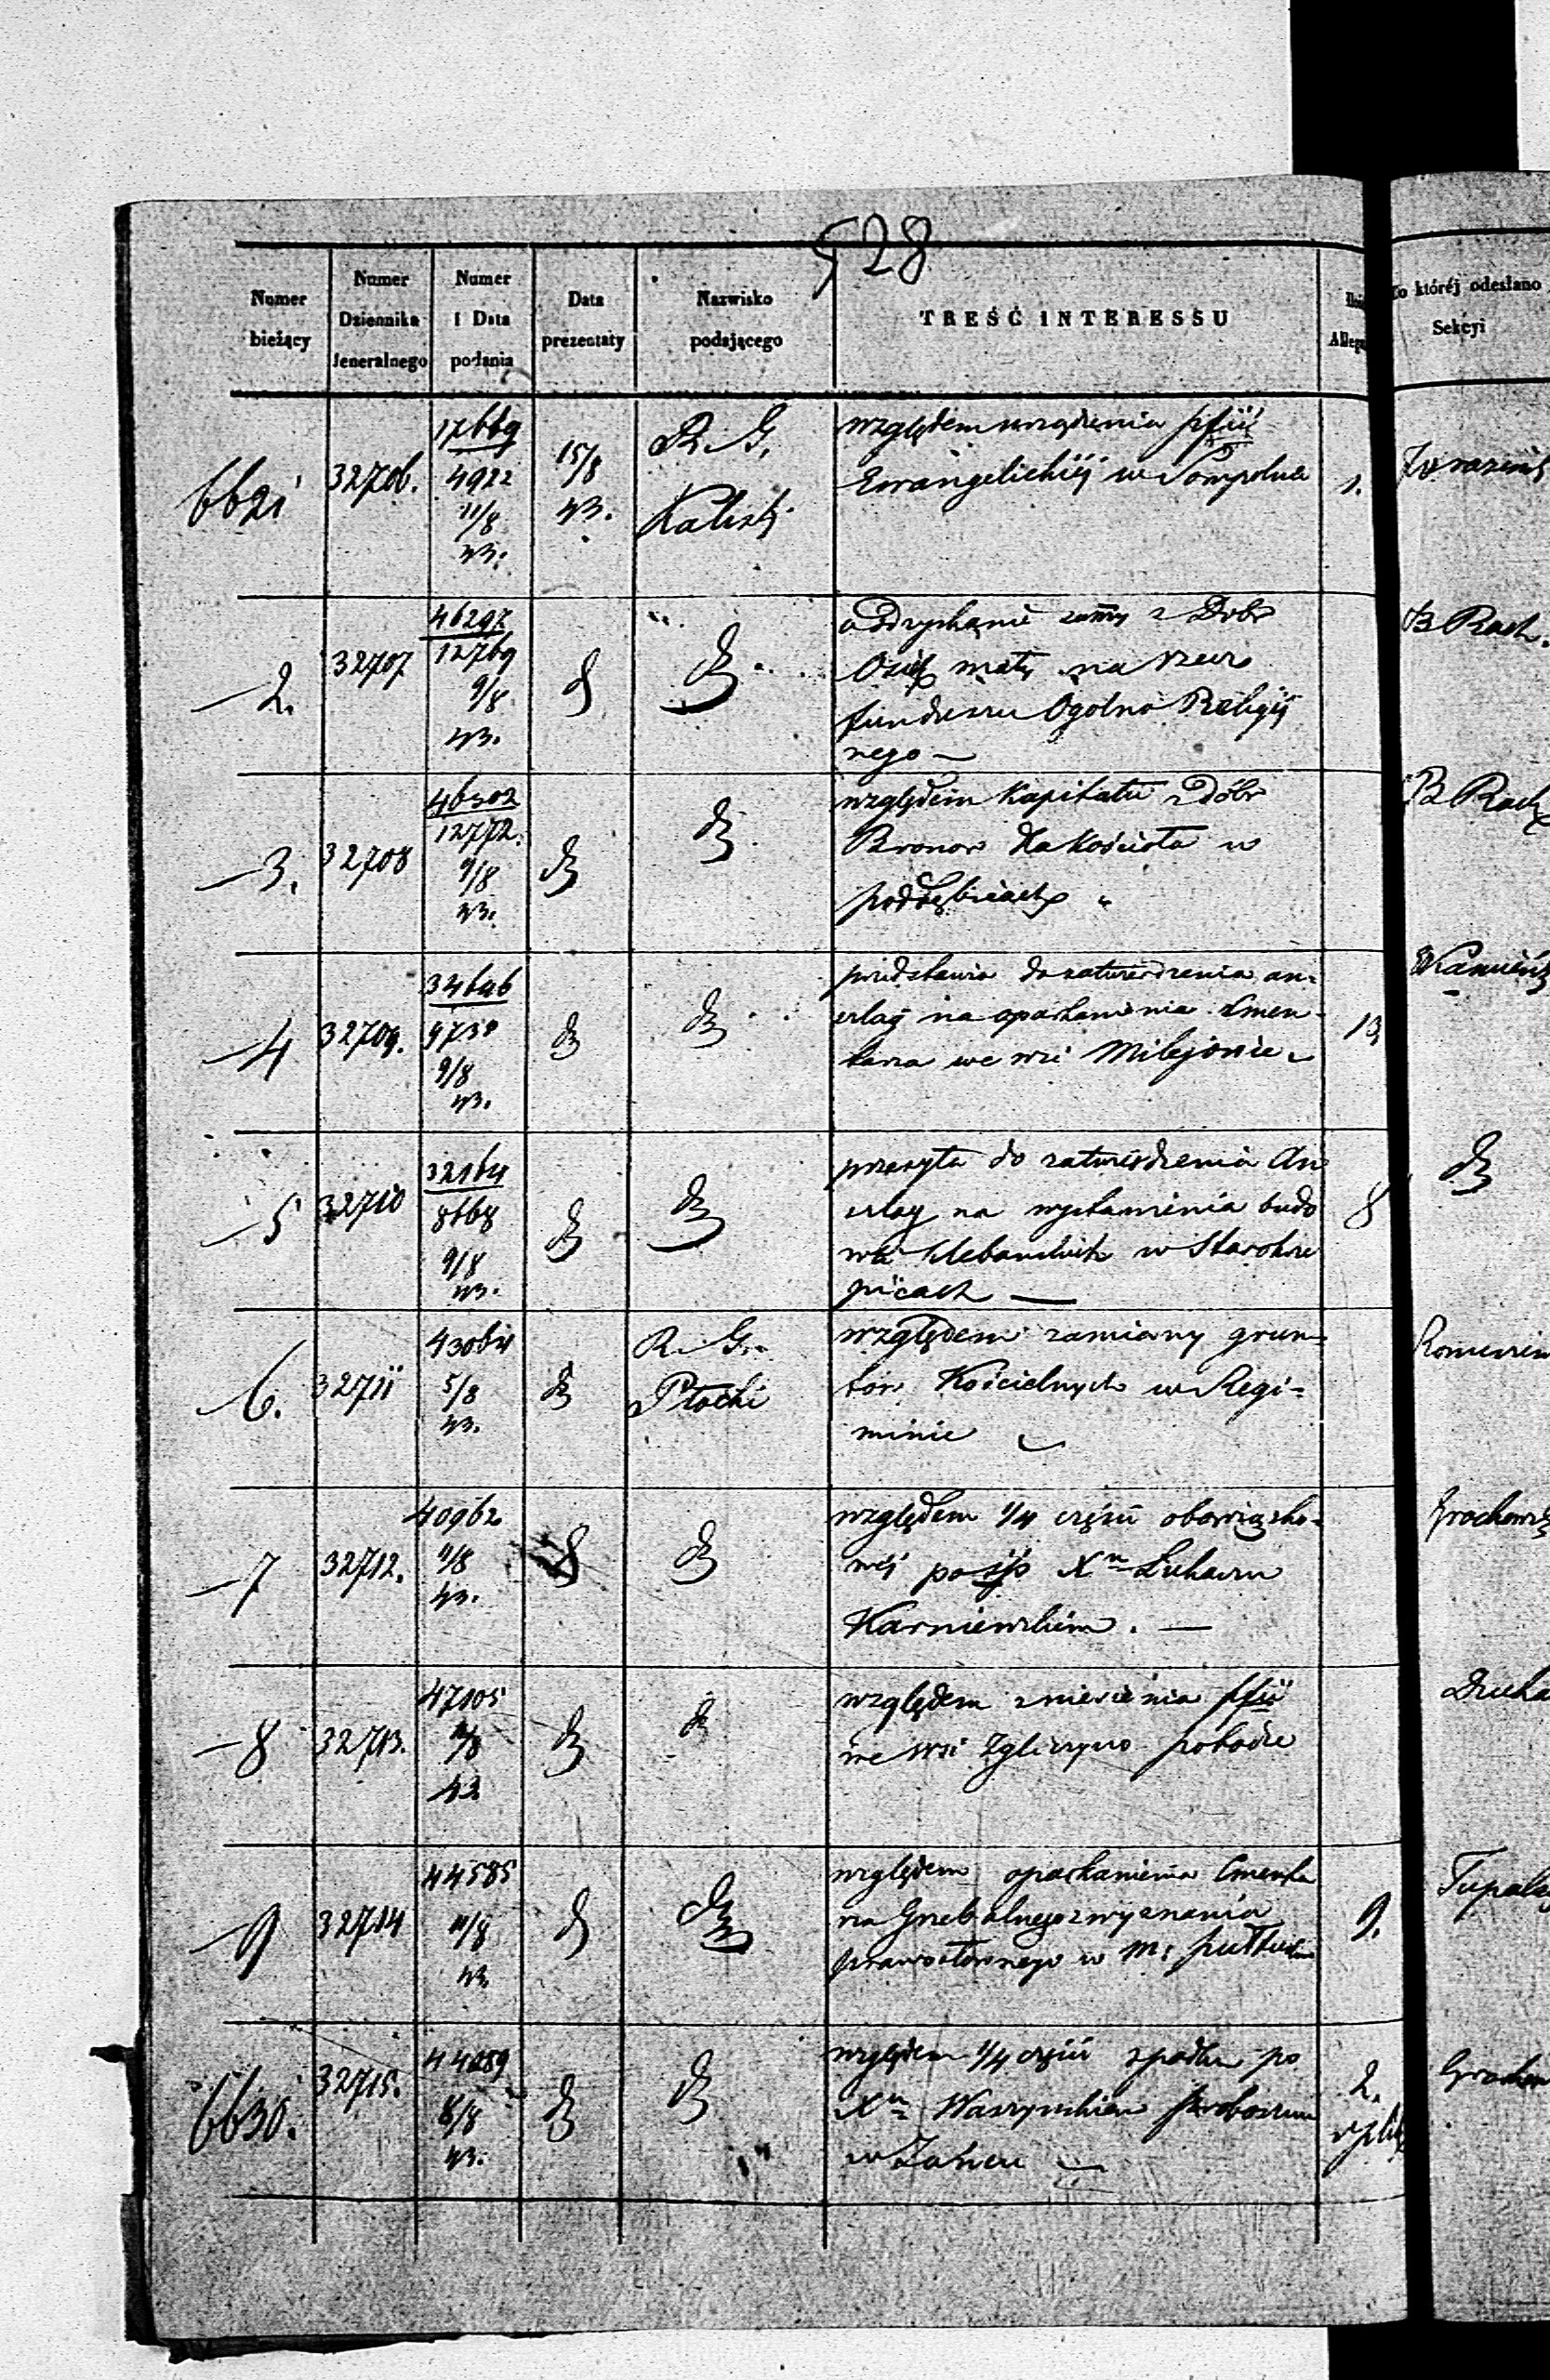 528
Numer bieżący
Numer Dziennika Jeneralnego
Numer i Data podania
Data prezentaty
Nazwisko podającego
TREŚĆ INTERESSU
Do któréj odesłano Sekcyi
6621
32706.
17669
4922
11/8
43.
15/8
43.
R. G.
Kaliski
względem urządzenia pfii
Ewangelickiéj w Sompolnie
1.
2.
32707
46297
12769
9/8
43.
d
dt
odzyskanie summy z Dobr
Osiek mały na rzecz
funduszu Ogolno Religij
nego —
B Rach.
3.
32708
46302
12772.
9/8
43.
dt
dt
względem Kapitału z Dóbr
Bronow dla Kościoła w
poddębicach
B Rach
4
32709.
34646
9730
9/8
43.
dt
dt
przedstawia do zatwierdzenia an-
szlag na oparkanienie Cmen-
tarza we wsi Milejowie
13
Kamieńs
5
32710
32164
8668
9/8
43.
dt
dt
przesyła do zatwierdzenia An
szlag na wystawienie budo
wli Plebańskich w Starokrze
picach —
8
dt
6.
32711
43064
5/8
43.
dt
R. G.
Płocki
względem zamiany grun-
tów Kościelnych w Regi-
minie
7
32712.
40962
11/8
43.
d
dt
względem 1/4 części obowiązko-
wéj po śp Xn Łukaszu
Karniewskim. —
Grochows
8
32713.
47105
11/8
43
dt
dt
względem zniesienia pfii
we wsi Zgliczyno pobodze
9
32714
44585
11/8
43.
d
dt
względem oparkanienia Cmenta
rza Grzebalnego wyznania
prawosławnego w m. pułtusku
9.
6630.
32715.
44089
8/8
43.
dt
dt
względem 1/4 części spadku po
Xn Waszyńskim proboszczu
w
2.